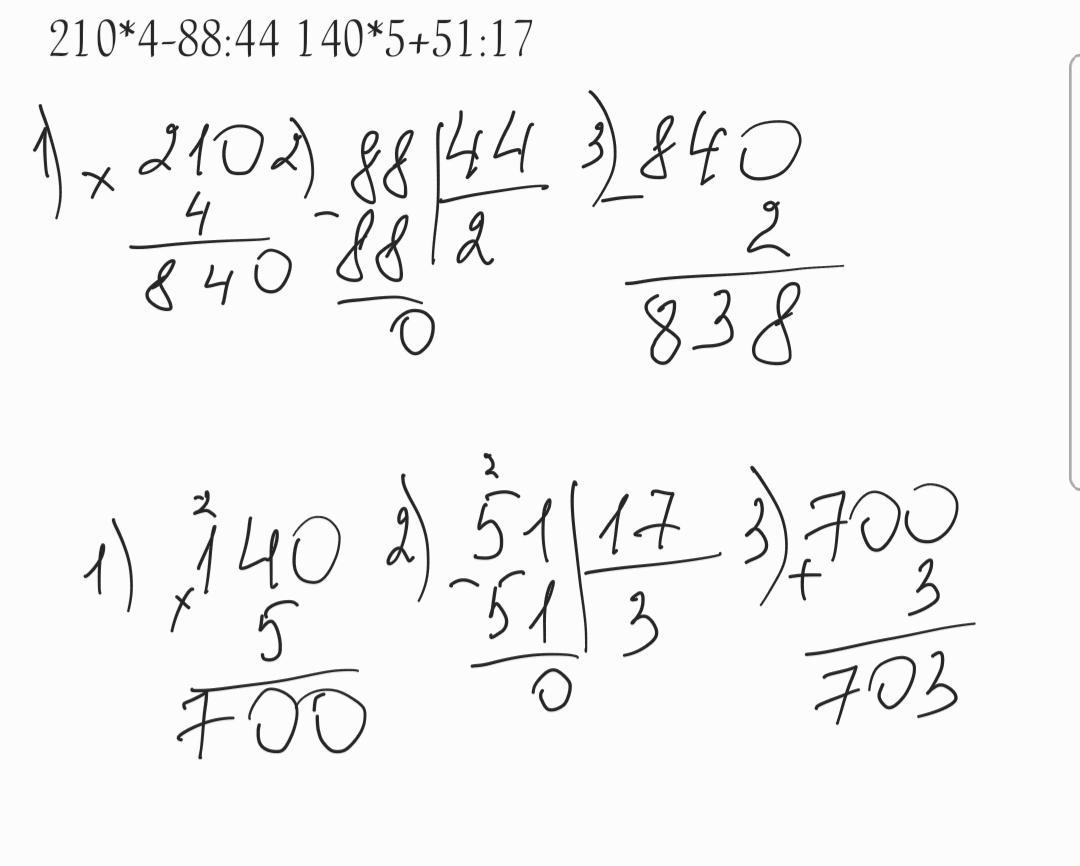 210*4-88:44 140*5+51:17
1) × 210 2) 88 | 44 3) 840
4 - 88 | 2 - 2
840 0 838
2 2
1) 140 2) 51 | 17 3) 700
× 5 - 51 | 3 + 3
700 0 703